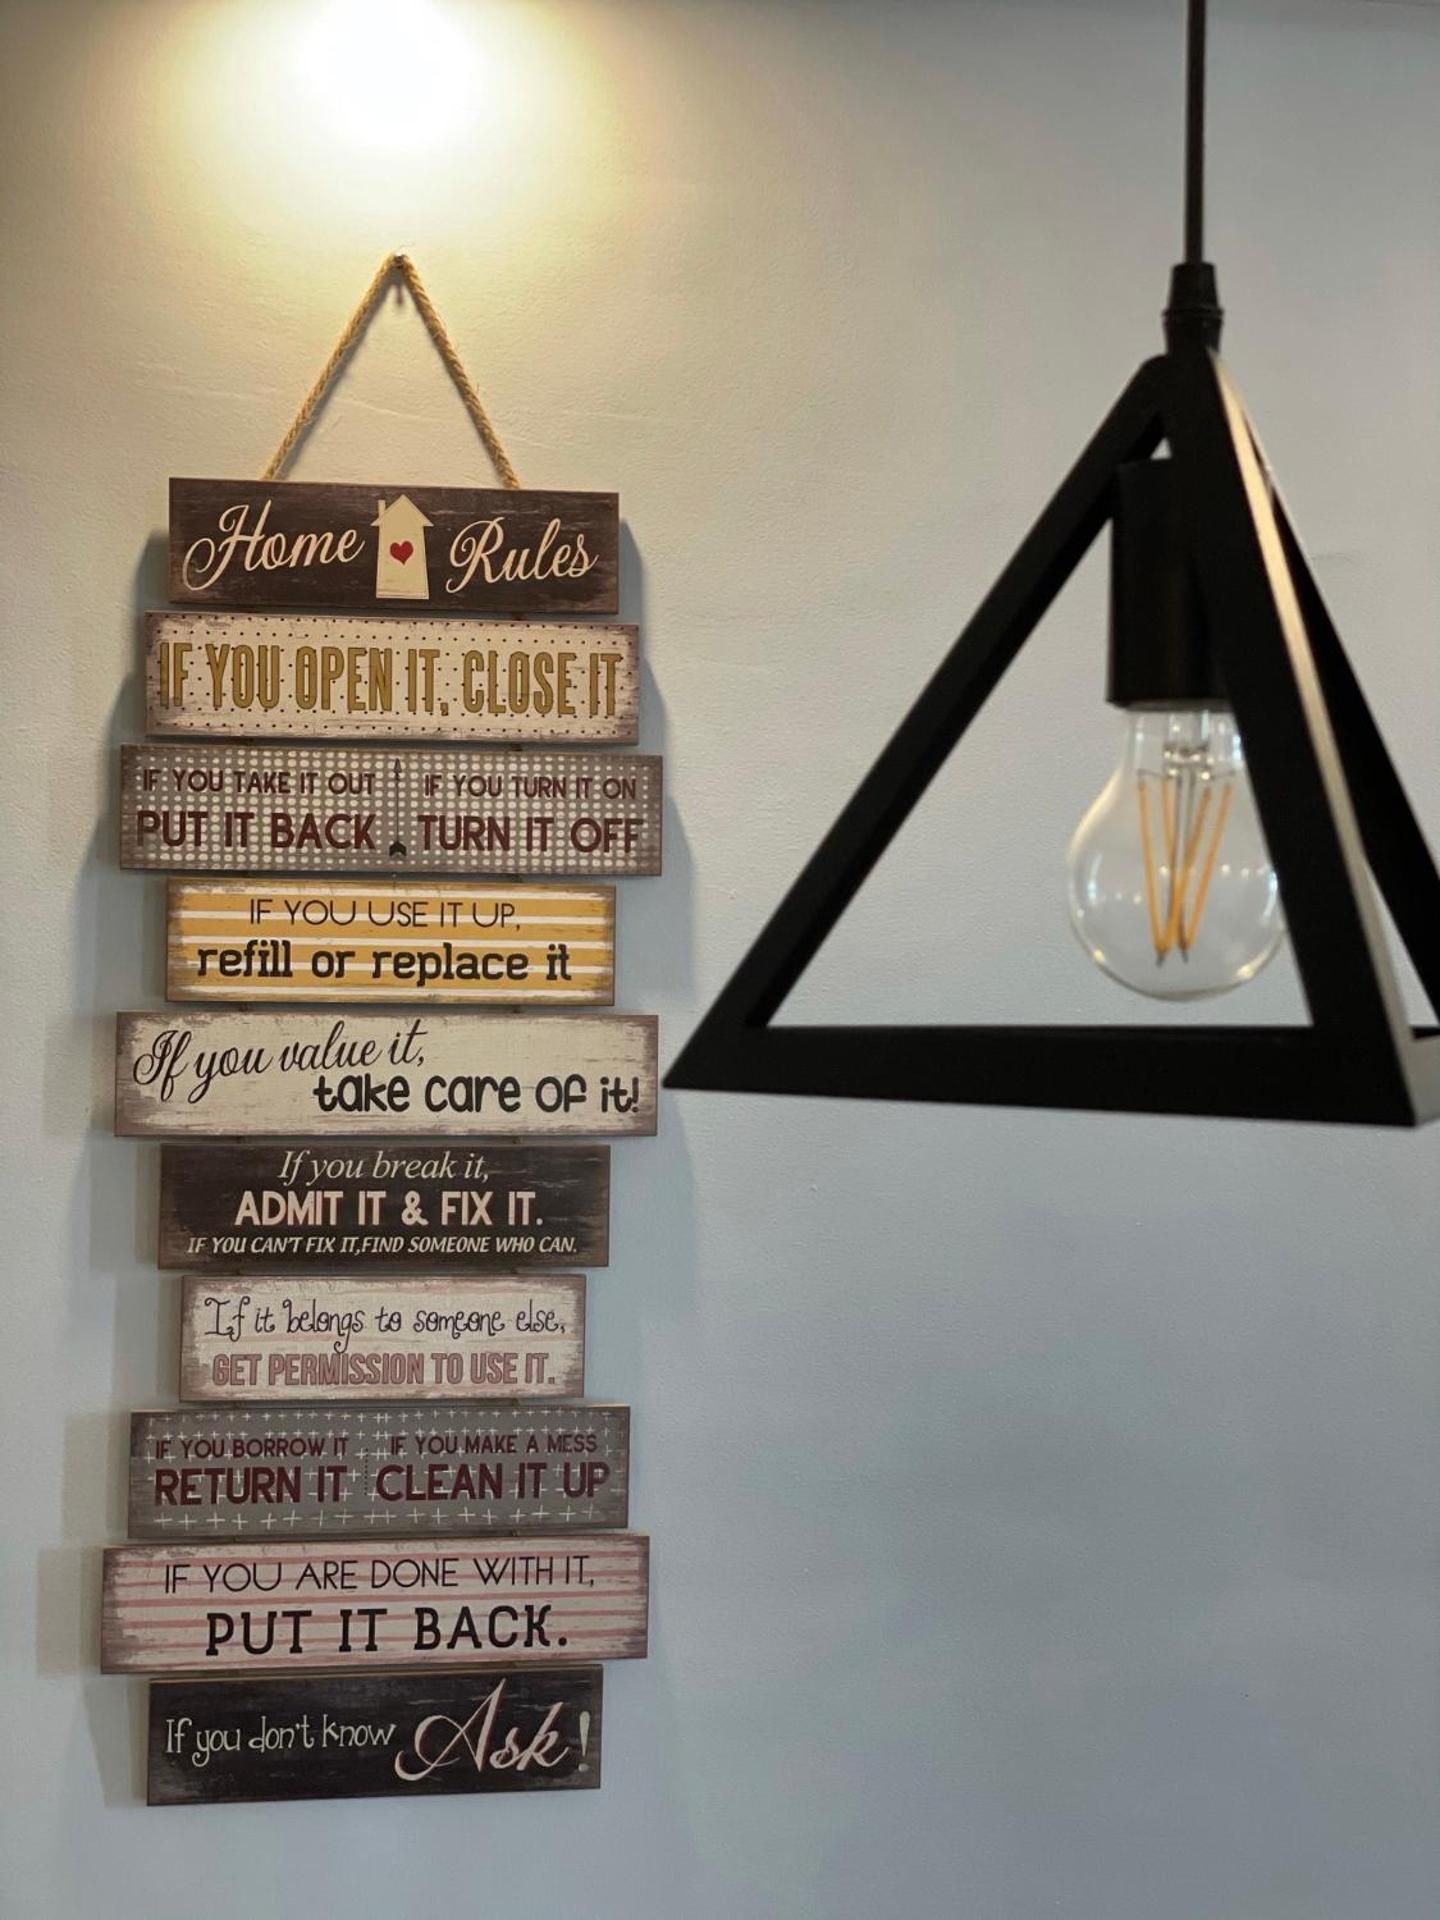 Home Rules
IF YOU OPEN IT, CLOSE IT
IF YOU TAKE IT OUT
PUT IT BACK
IF YOU TURN IT ON
TURN IT OFF
IF YOU USE IT UP,
refill or replace it
If you value it,
take care of it!
If you break it,
ADMIT IT & FIX IT.
IF YOU CAN'T FIX IT,FIND SOMEONE WHO CAN.
If it belongs to someone else,
GET PERMISSION TO USE IT.
IF YOU BORROW IT
RETURN IT
IF YOU MAKE A MESS
CLEAN IT UP
IF YOU ARE DONE WITH IT,
PUT IT BACK.
If you don't know Ask!